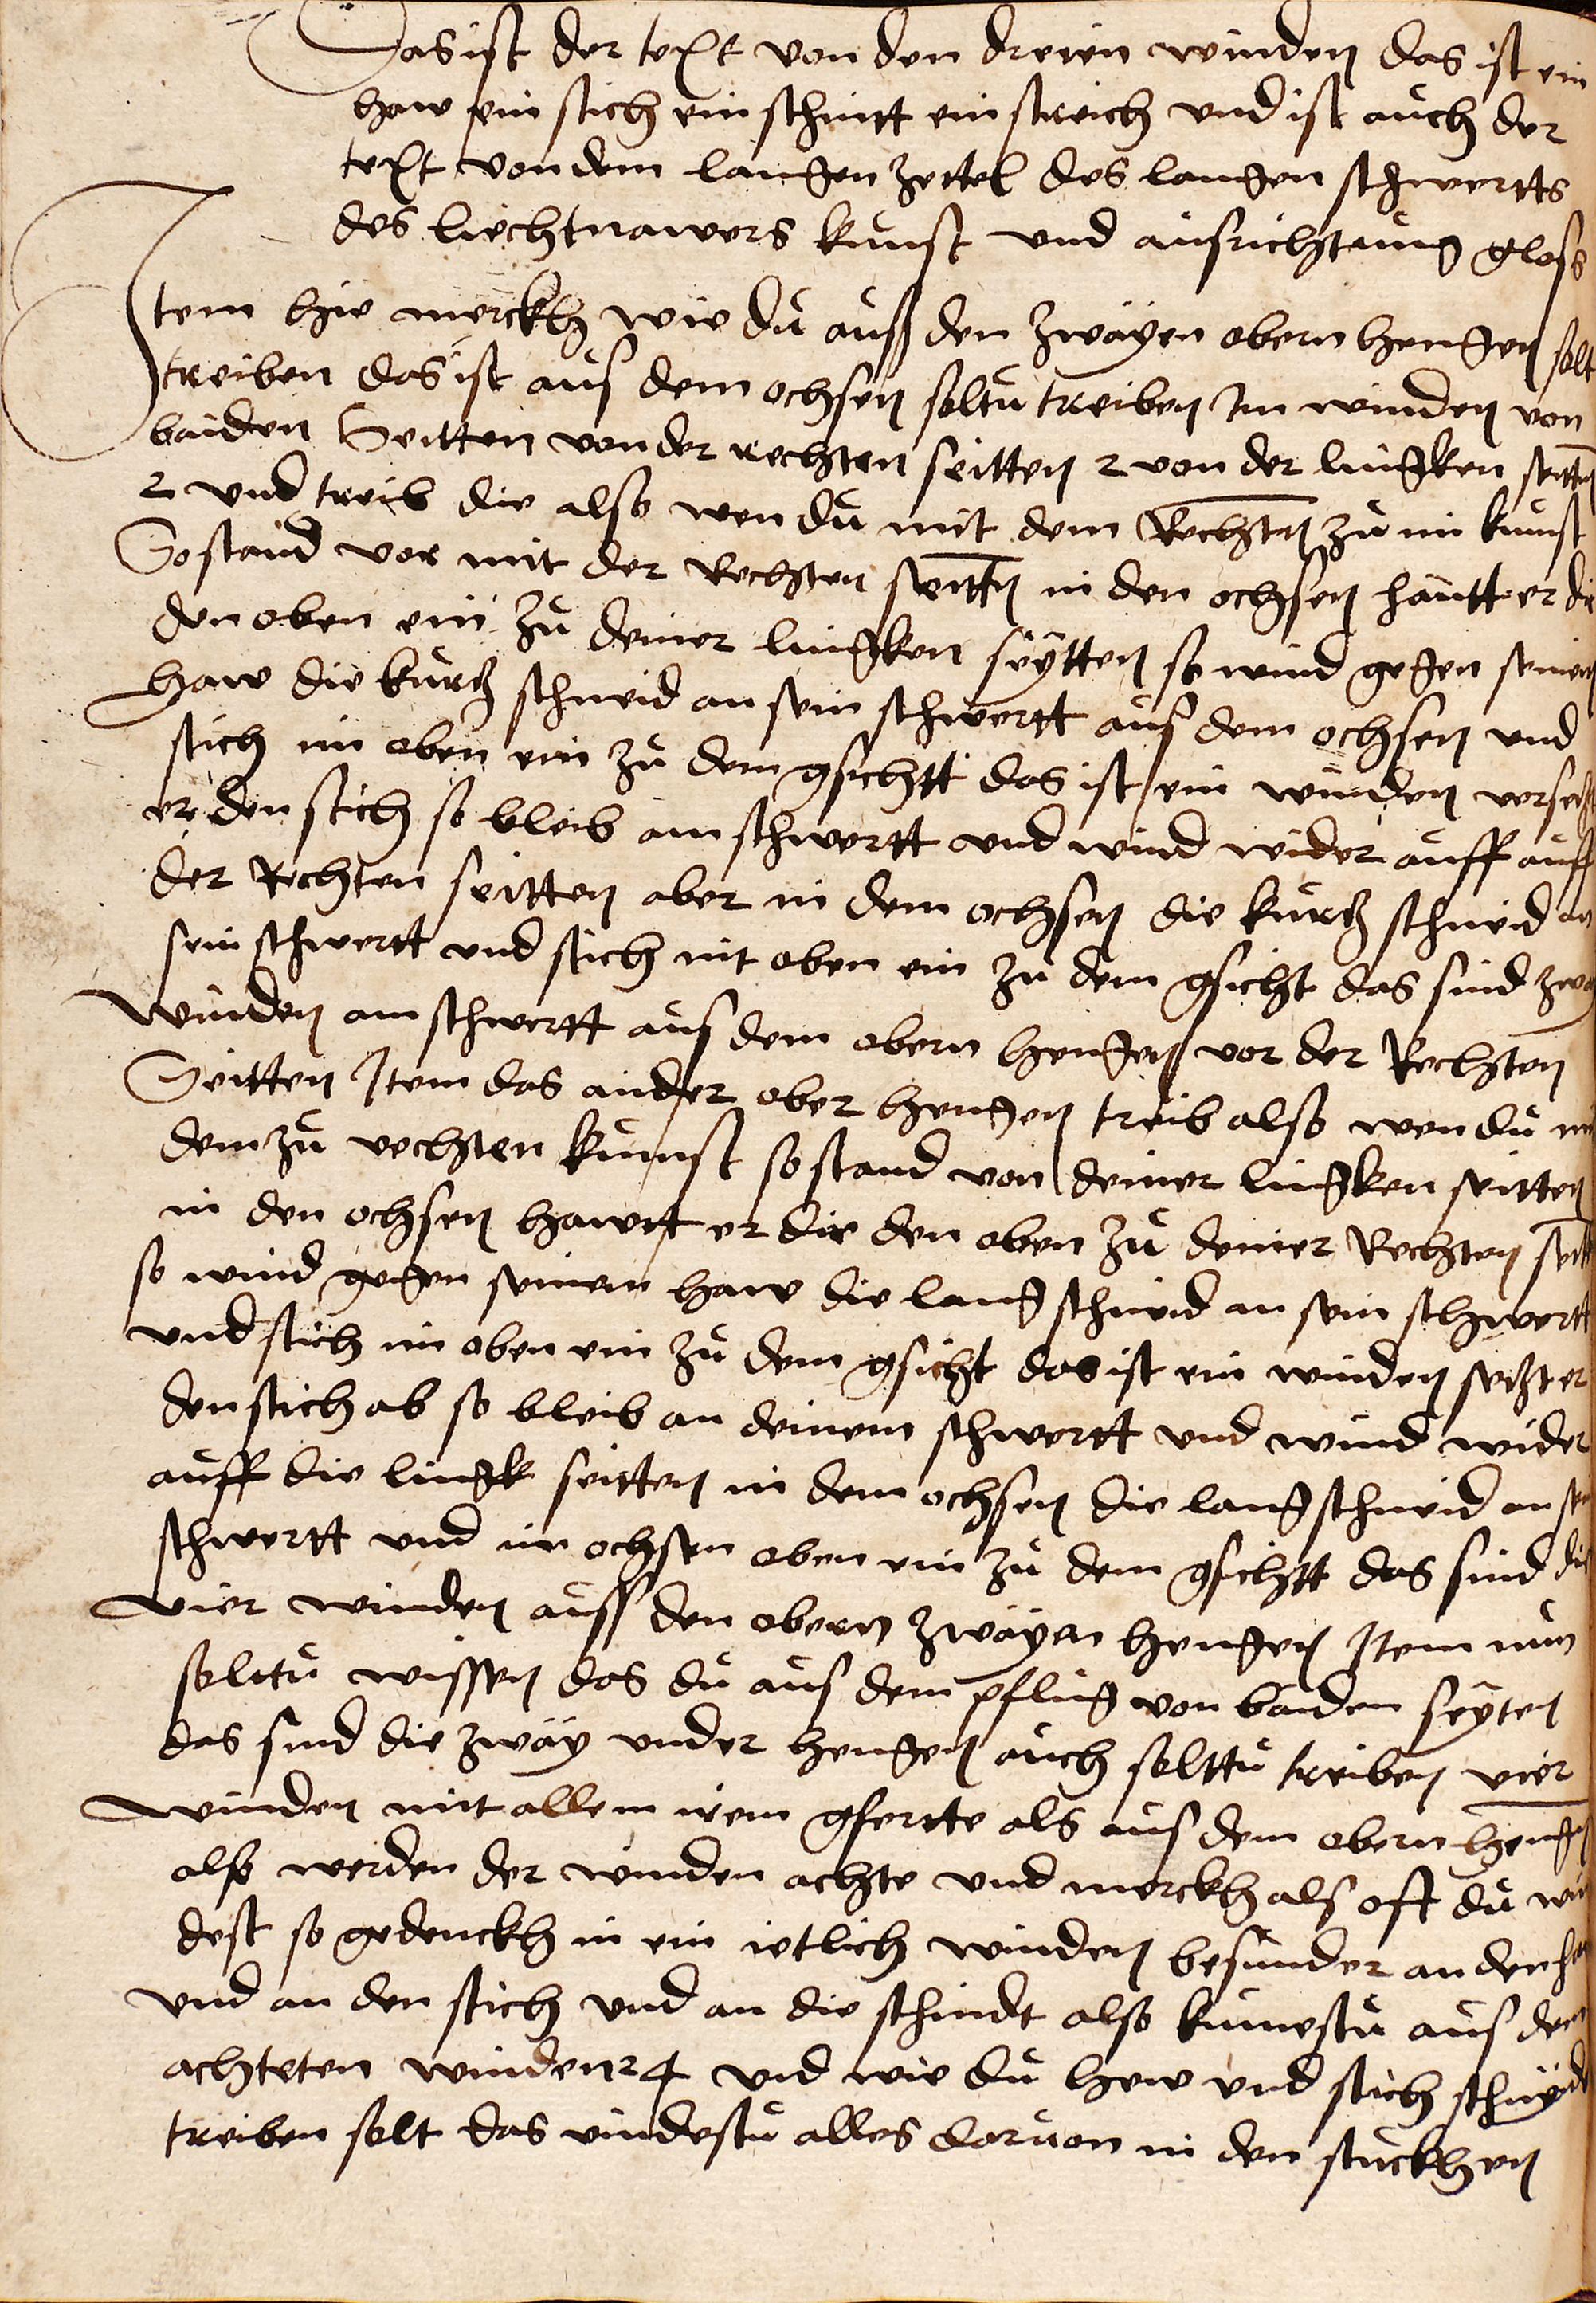 Das ist der text von den dreien winden das ist ein
haw ein stich ein schnitt ein streich vnd ist auch der
text von dem langen zettel des langen schwertts
des liechtnawers kunst vnd ausrichtung gloss
Item hie merckh wie du auss den zwäyen obern hengen solt
treiben das ist aus dem ochsen soltu treiben Im winden von
baiden Seitten von der rechten seitten 2 von der lingken seitten
2 vnd treib die also wen du mit dem Rechten zu im kunst
So stand vor mit der Rechten seitten in den ochsen hautt er dir
den oben ein zu deiner lingken seytten so wind gegen seinem
haw die kurtz schneid an sein schwertt aus dem ochsen vnd
stich im oben ein zu dem gsichtt das ist ein winden versetzt
er den stich so bleib am schwertt vnd wind wider auff auff
der Rechten seitten aber in dem ochsen die kurtz schneid an
sein schwertt vnd stich mit oben ein zu dem gsicht das sind zway
winden am schwertt aus dem obern hengen vor der Rechten
Seitten Item das ander ober hengen treib also wen du mit
dem zu vechten kumst so stand von deiner lingken seitten
in den ochsen hawet er dir den oben zu deiner Rechten seitt
so wind gegen seinem haw die lang schneid an sein schwertt
vnd stich im oben ein zu dem gsicht das ist ein winden setzt er
den stich ab so bleib an deinem schwertt vnd wind wider
auff die lingk seitten in dem ochsen die lang schneid an sein
schwertt vnd im ochsen oben ein zu dem gsichtt das sind die
vier winden auss den obern zwäyen hengen Item nun
soltu wissen das du aus dem pflug von baiden seyten
das sind die zwäy vnder hengen auch solttu treiben vier
winden mit allem irem gfertte als aus dem obern hengen
also werden der winden achte vnd merckh als oft du win
dest so gedenckh in ein ietlich winden besunder an den haw
vnd an den stich vnd an die schindt also kumestu aus den
achteten winden 24 vnd wie du hew vnd stich schnydt
treiben solt das vindestu alles daruon in den stuckhen